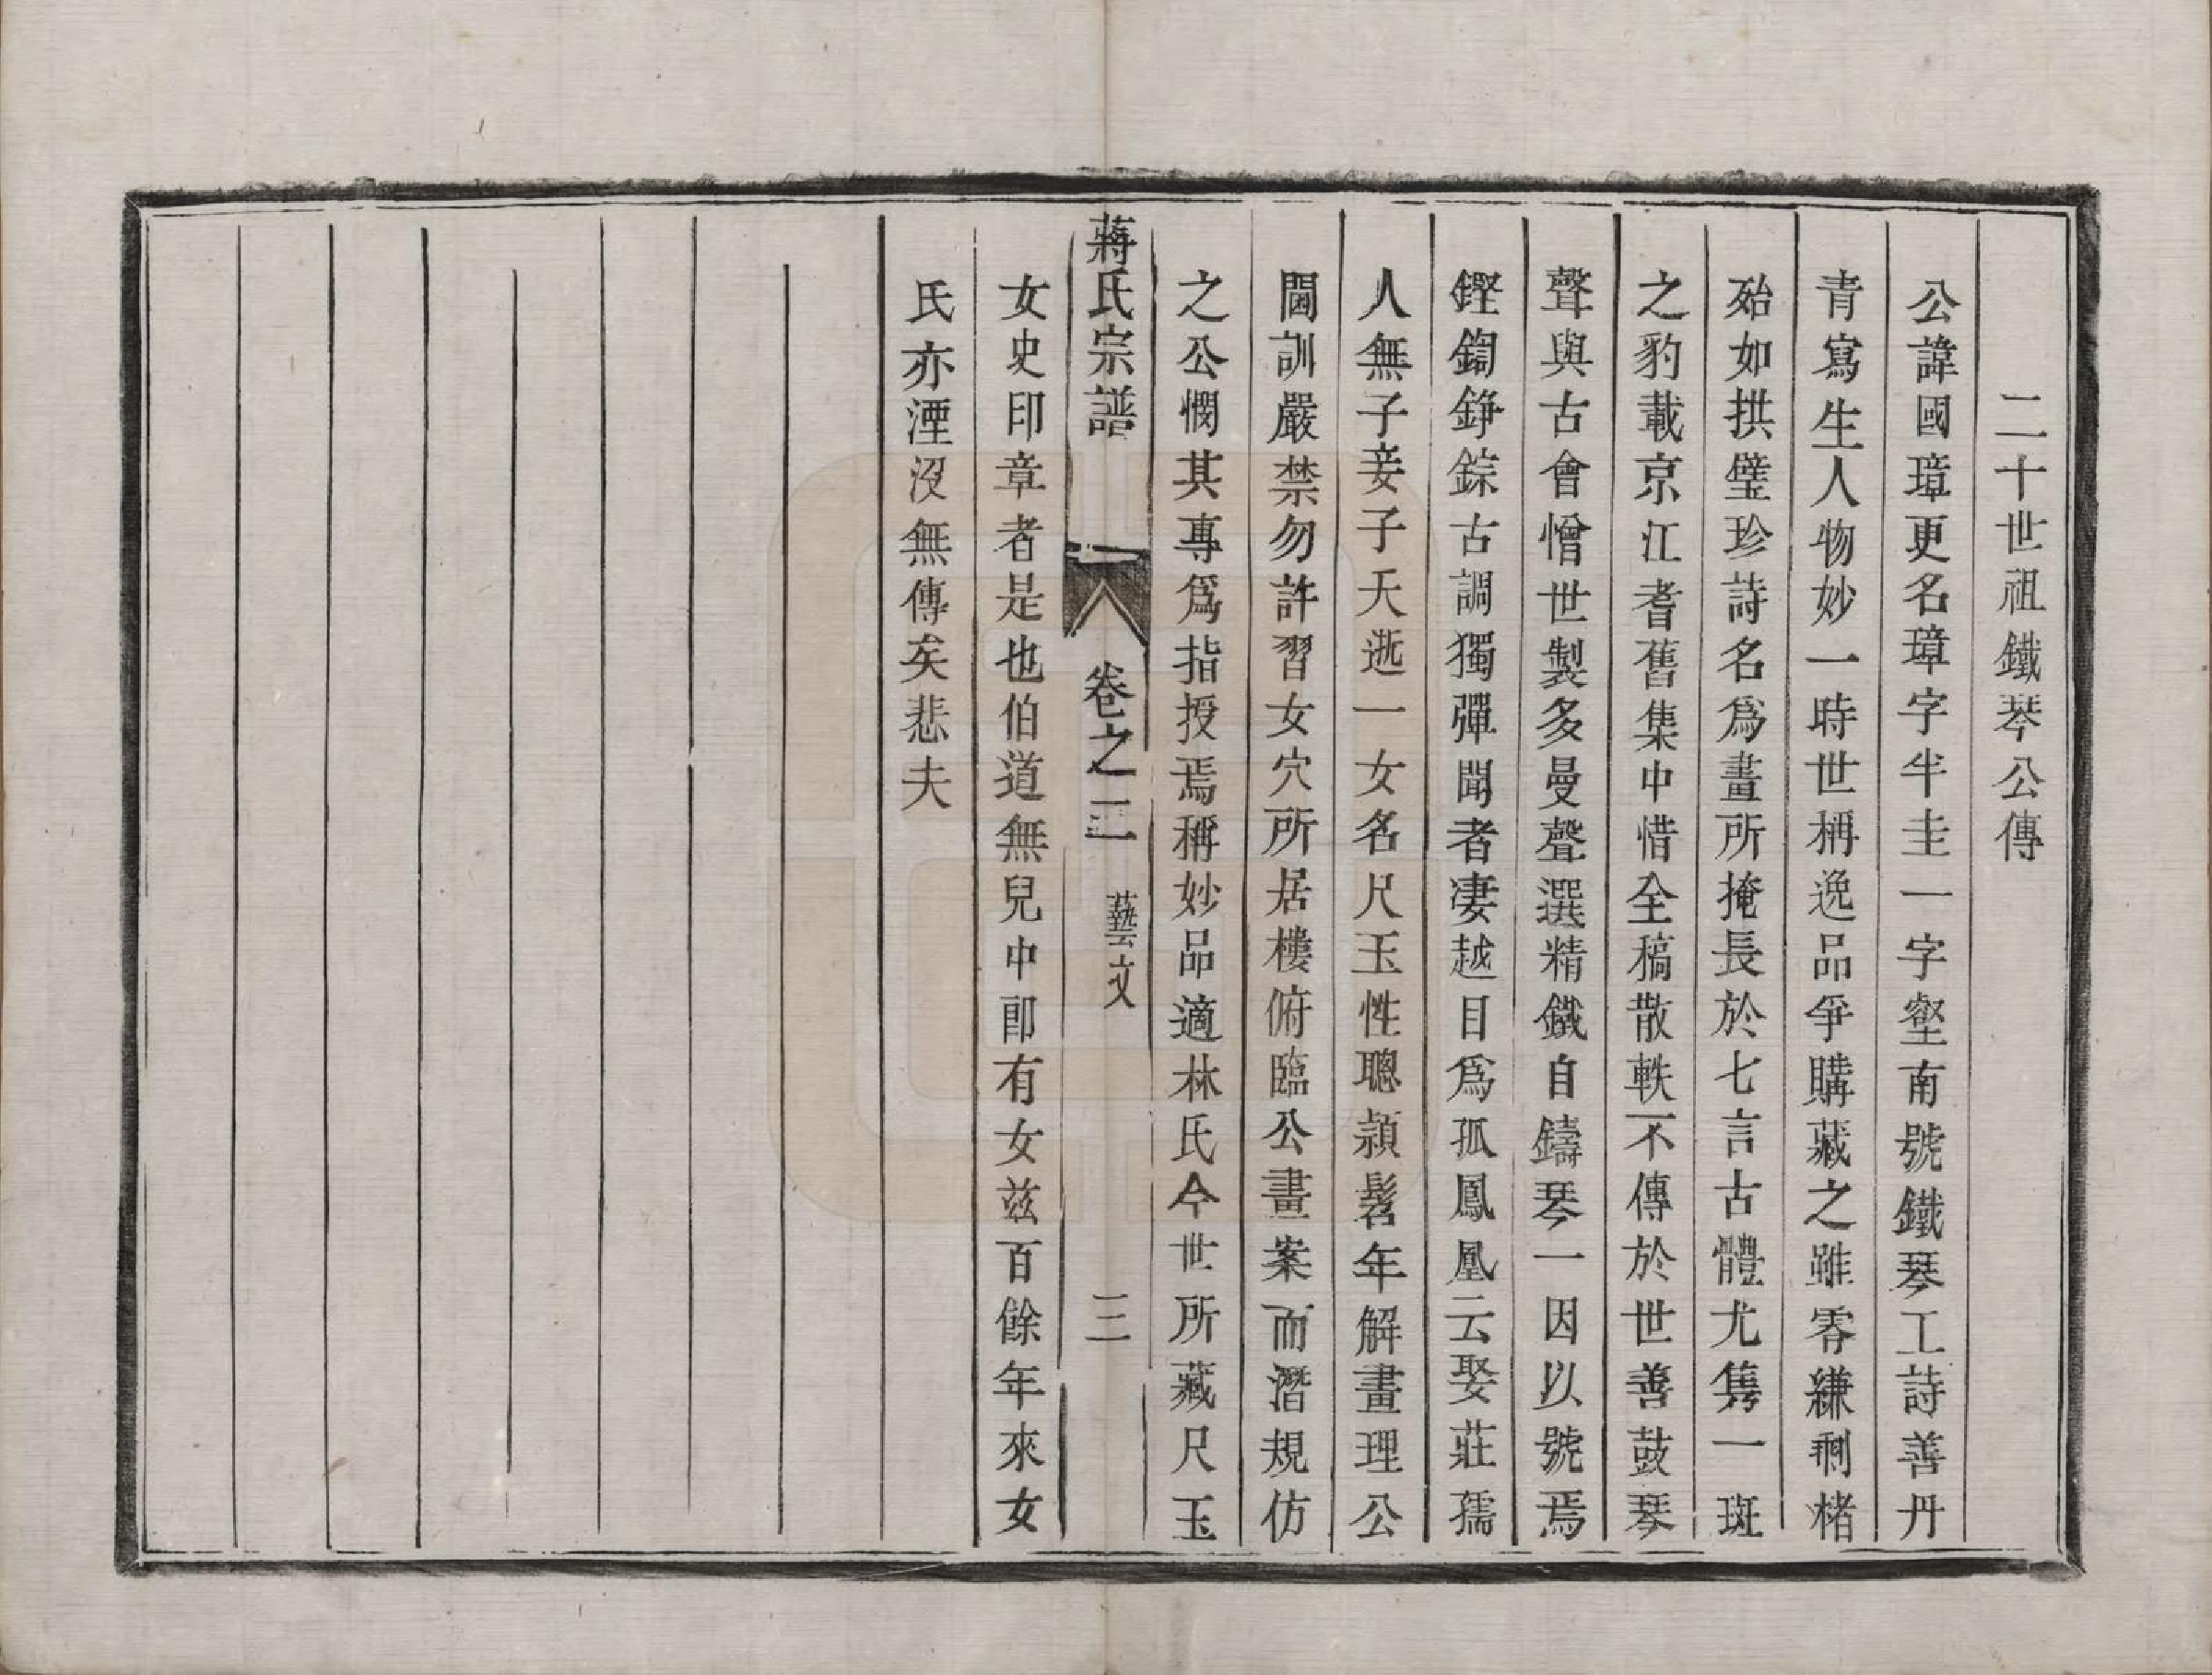 二十世祖鐵琴公傳
公諱國璋更名璋字半圭一字壑南號鐵琴工詩善丹
青寫生人物妙一時世稱逸品爭購藏之雖零縑剩楮
殆如拱璧珍詩名爲畫所掩長於七言古體尤雋一斑
之豹載京江耆舊集中惜全稿散軼不傳於世善鼓琴
聲與古會憎世製多曼聲選精鐵自鑄琴一因以號焉
鏗鍧錚鏦古調獨彈聞者凄越目爲孤鳳凰云娶莊孺
人無子妾子夭逝一女名尺玉性聰頴髫年解畫理公
閫訓嚴禁勿許習女穴所居樓俯臨公畫案而潛規仿
之公憫其專爲指授焉稱妙品適林氏今世所藏尺玉
蔣氏宗譜 卷之二 藝文 三
女史印章者是也伯道無兒中郎有女兹百餘年來女
氏亦湮沒無傳矣悲夫